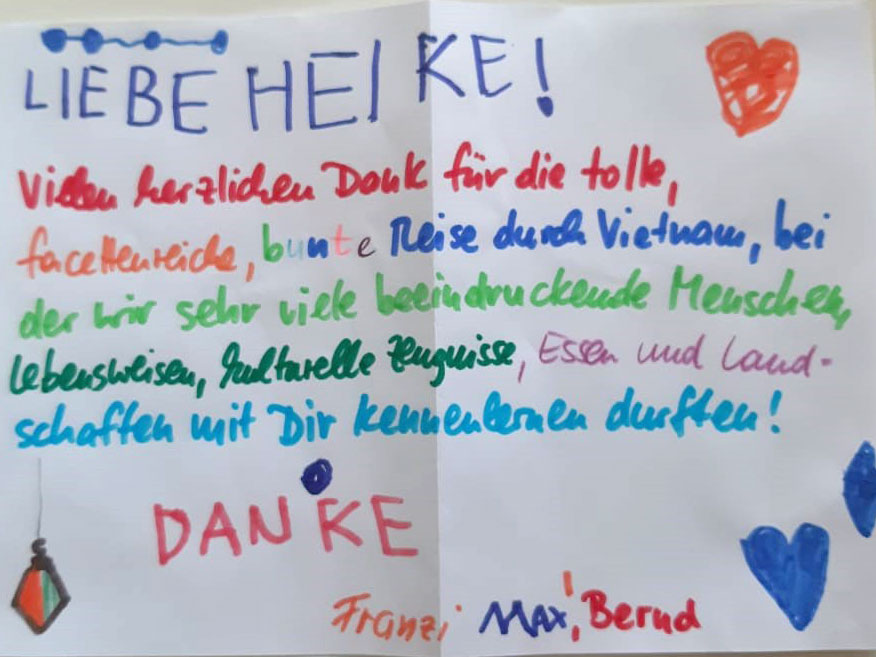 LIEBE HEIKE!
Vielen herzlichen Dank für die tolle,
facettenreiche, bunte Reise durch Vietnam, bei
der wir sehr viele beeindruckende Menschen,
Lebensweisen, kulturelle Zeugnisse, Essen und Land-
schaften mit Dir kennenlernen durften!
DANKE
Franzi Max, Bernd